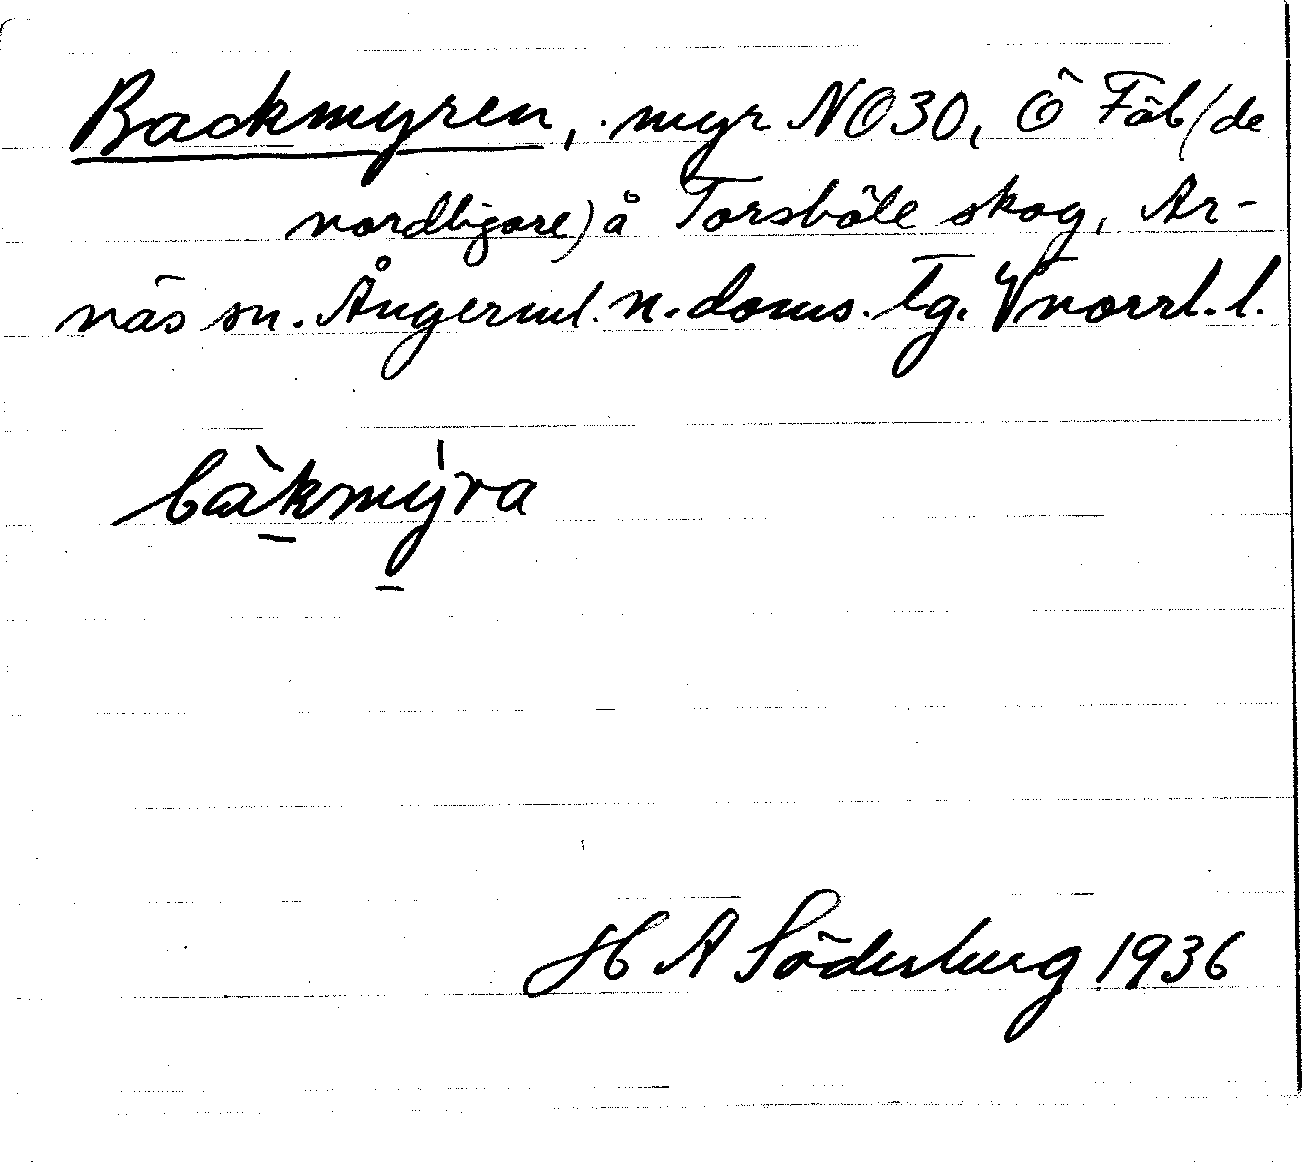 Backmyren, myr NO30, Ö Fäb (de
nordligare) å Torsböle skog, Ar-
näs sn. Ångerml. n. doms. tg. Vnorrl. l.
bàkmýra
H A Söderberg 1936